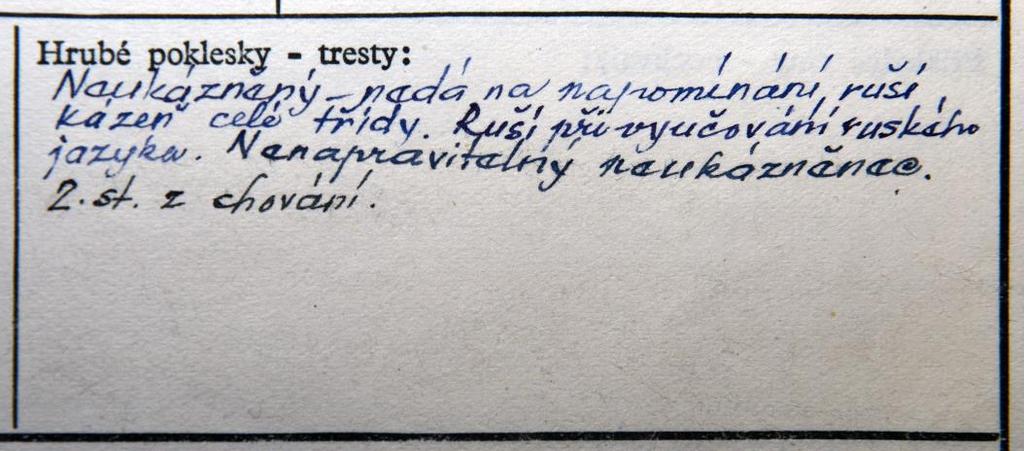 Hrubé poklesky - tresty:
Neukázněný - nedá na napomínání, ruší
kázeň celé třídy. Ruší při vyučování ruského
jazyka. Nenapravitelný neukázněnec.
2. st. z chování.